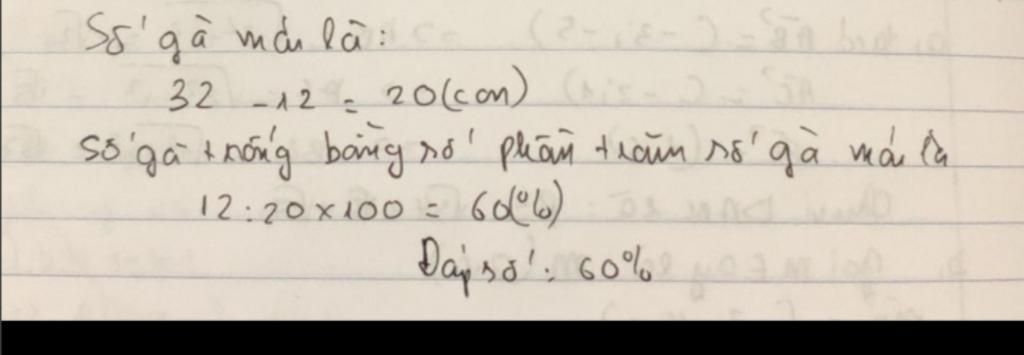 Số gà mái là:
32 - 12 = 20 (con)
Số gà trống bằng số phần trăm số gà mái là
12 : 20 x 100 = 60(%)
Đáp số: 60%